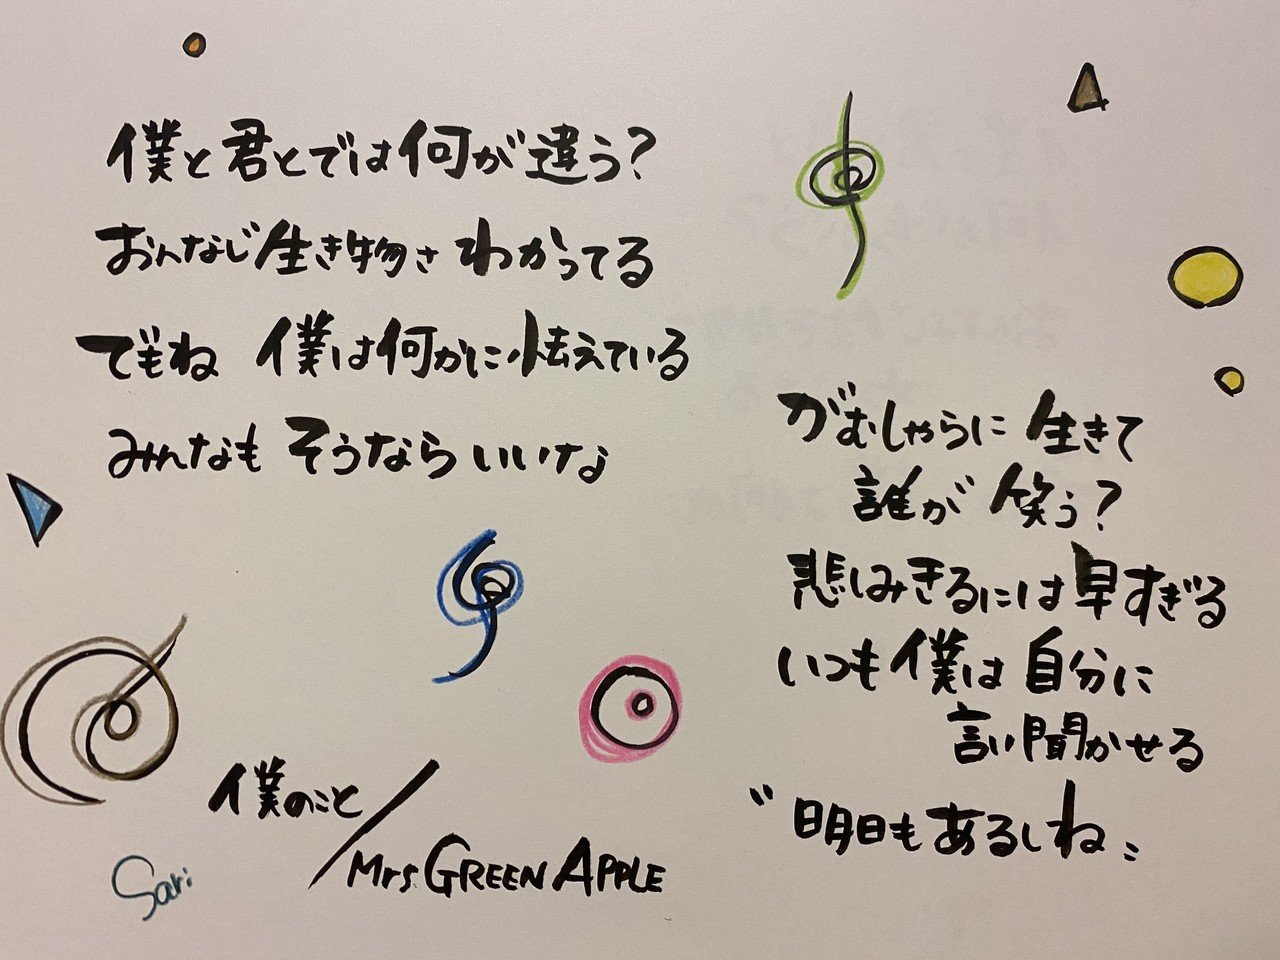 僕と君とでは何が違う?
おんなじ生き物さ わかってる
でもね 僕は何かに怯えている
みんなも そうならいいな
がむしゃらに 生きて
誰が 笑う?
悲しみきるには 早すぎる
いつも僕は 自分に
言い聞かせる
〝明日もあるしね〟
僕のこと/Mrs. GREEN APPLE
Sari